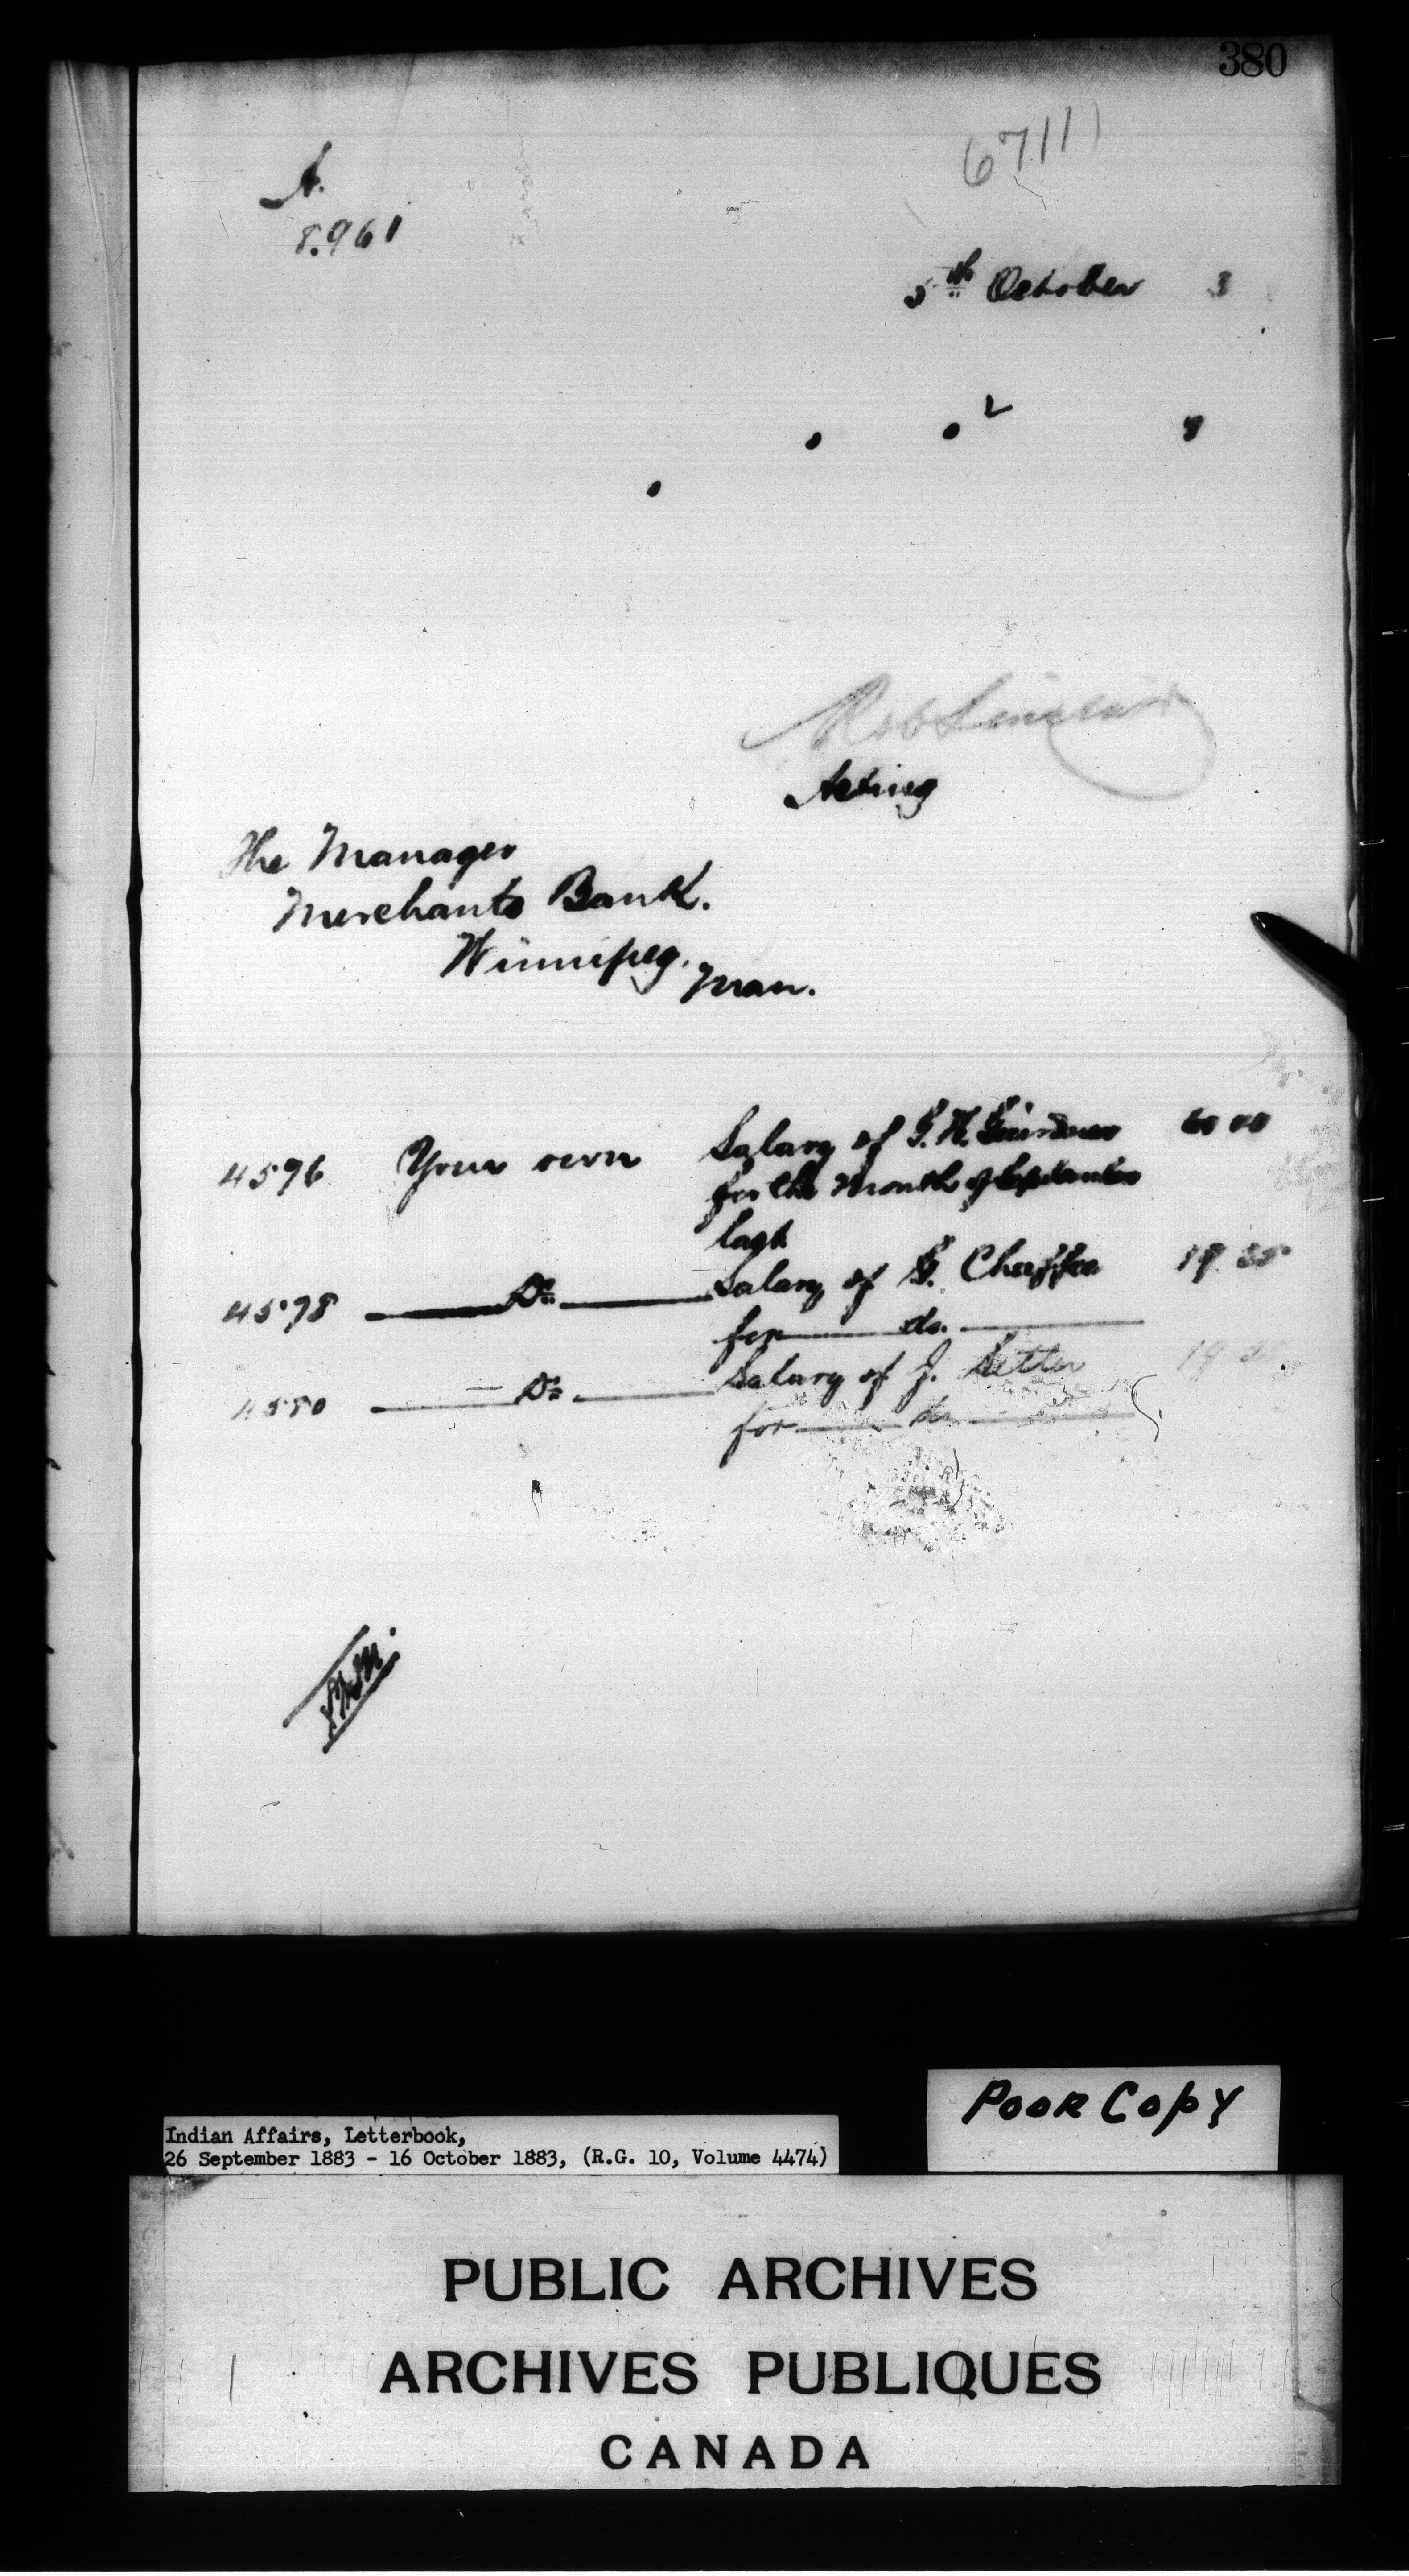 380
6711
A.
8.961
5th October 3
2
Rob Sinclair
Acting
The Manager
Merchants Bank.
Winnipeg. Man.
4596 Your own Salary of
for the month of September
last
4578 Do Salary of G.
for do.
Do Salary of J. Setter
for do
Poor Copy
Indian Affairs, Letterbook,
26 September 1883 - 16 October 1883, (R.G. 10, Volume 4474)
PUBLIC ARCHIVES
ARCHIVES PUBLIQUES
CANADA